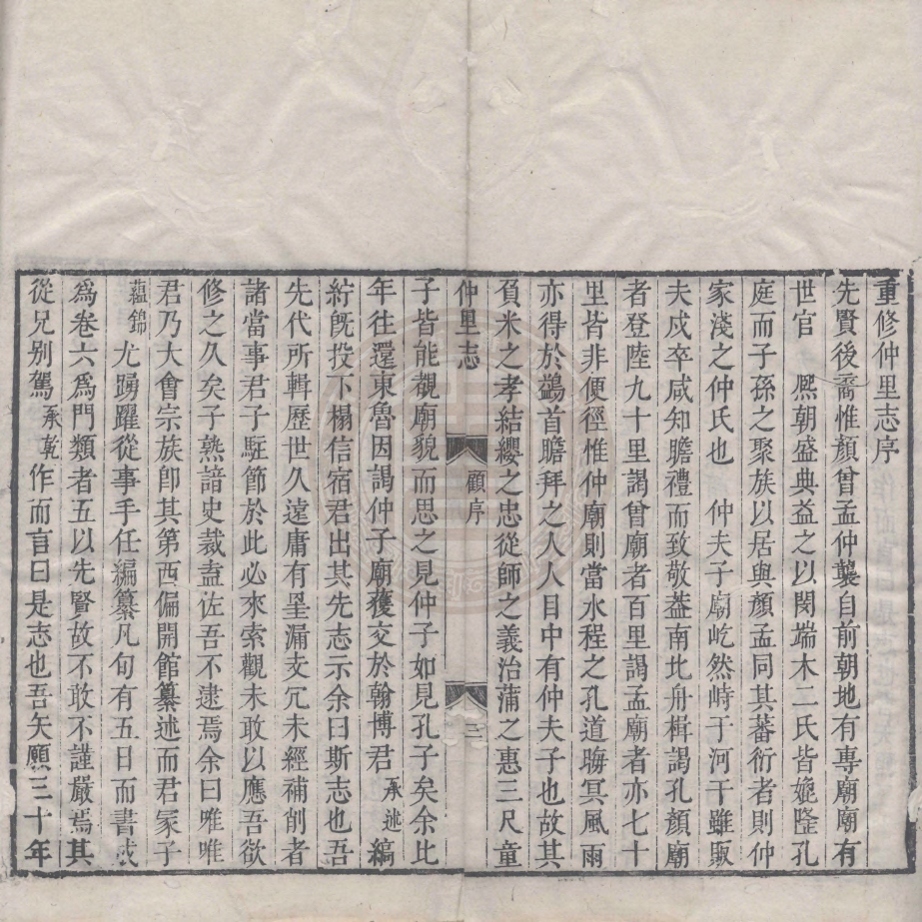 重修仲里志序
先賢後裔惟顏曾孟仲襲自前朝地有專廟廟有
世官 熈朝盛典益之以閔端木二氏皆媲隆孔
庭而子孫之聚族以居與顏孟同其蕃衍者則仲
家淺之仲氏也 仲夫子廟屹然峙于河干雖販
夫戍卒咸知瞻禮而致敬葢南北舟楫謁孔顏廟
者登陸九十里謁曾廟者百里謁孟廟者亦七十
里皆非便徑惟仲廟則當水程之孔道晦冥風雨
亦得於鷁首瞻拜之人人目中有仲夫子也故其
負米之孝結纓之忠從師之義治蒲之惠三尺童
仲里志 顧序 三
子皆能覩廟貌而思之見仲子如見孔子矣余比
年往還東魯因謁仲子廟獲交於翰博君承述縞
紵旣投下榻信宿君出其先志示余曰斯志也吾
先代所輯歷世久遠庸有罣漏支冗未經補削者
諸當事君子駐節於此必來索觀未敢以應吾欲
修之久矣子熟諳史裁盍佐吾不逮焉余曰唯唯
君乃大會宗族卽其第西偏開館纂述而君冢子
蘊錦尤踴躍從事手任編纂凡旬有五日而書成
為卷六為門類者五以先賢故不敢不謹嚴焉其
從兄别駕承乾作而言曰是志也吾矢願三十年